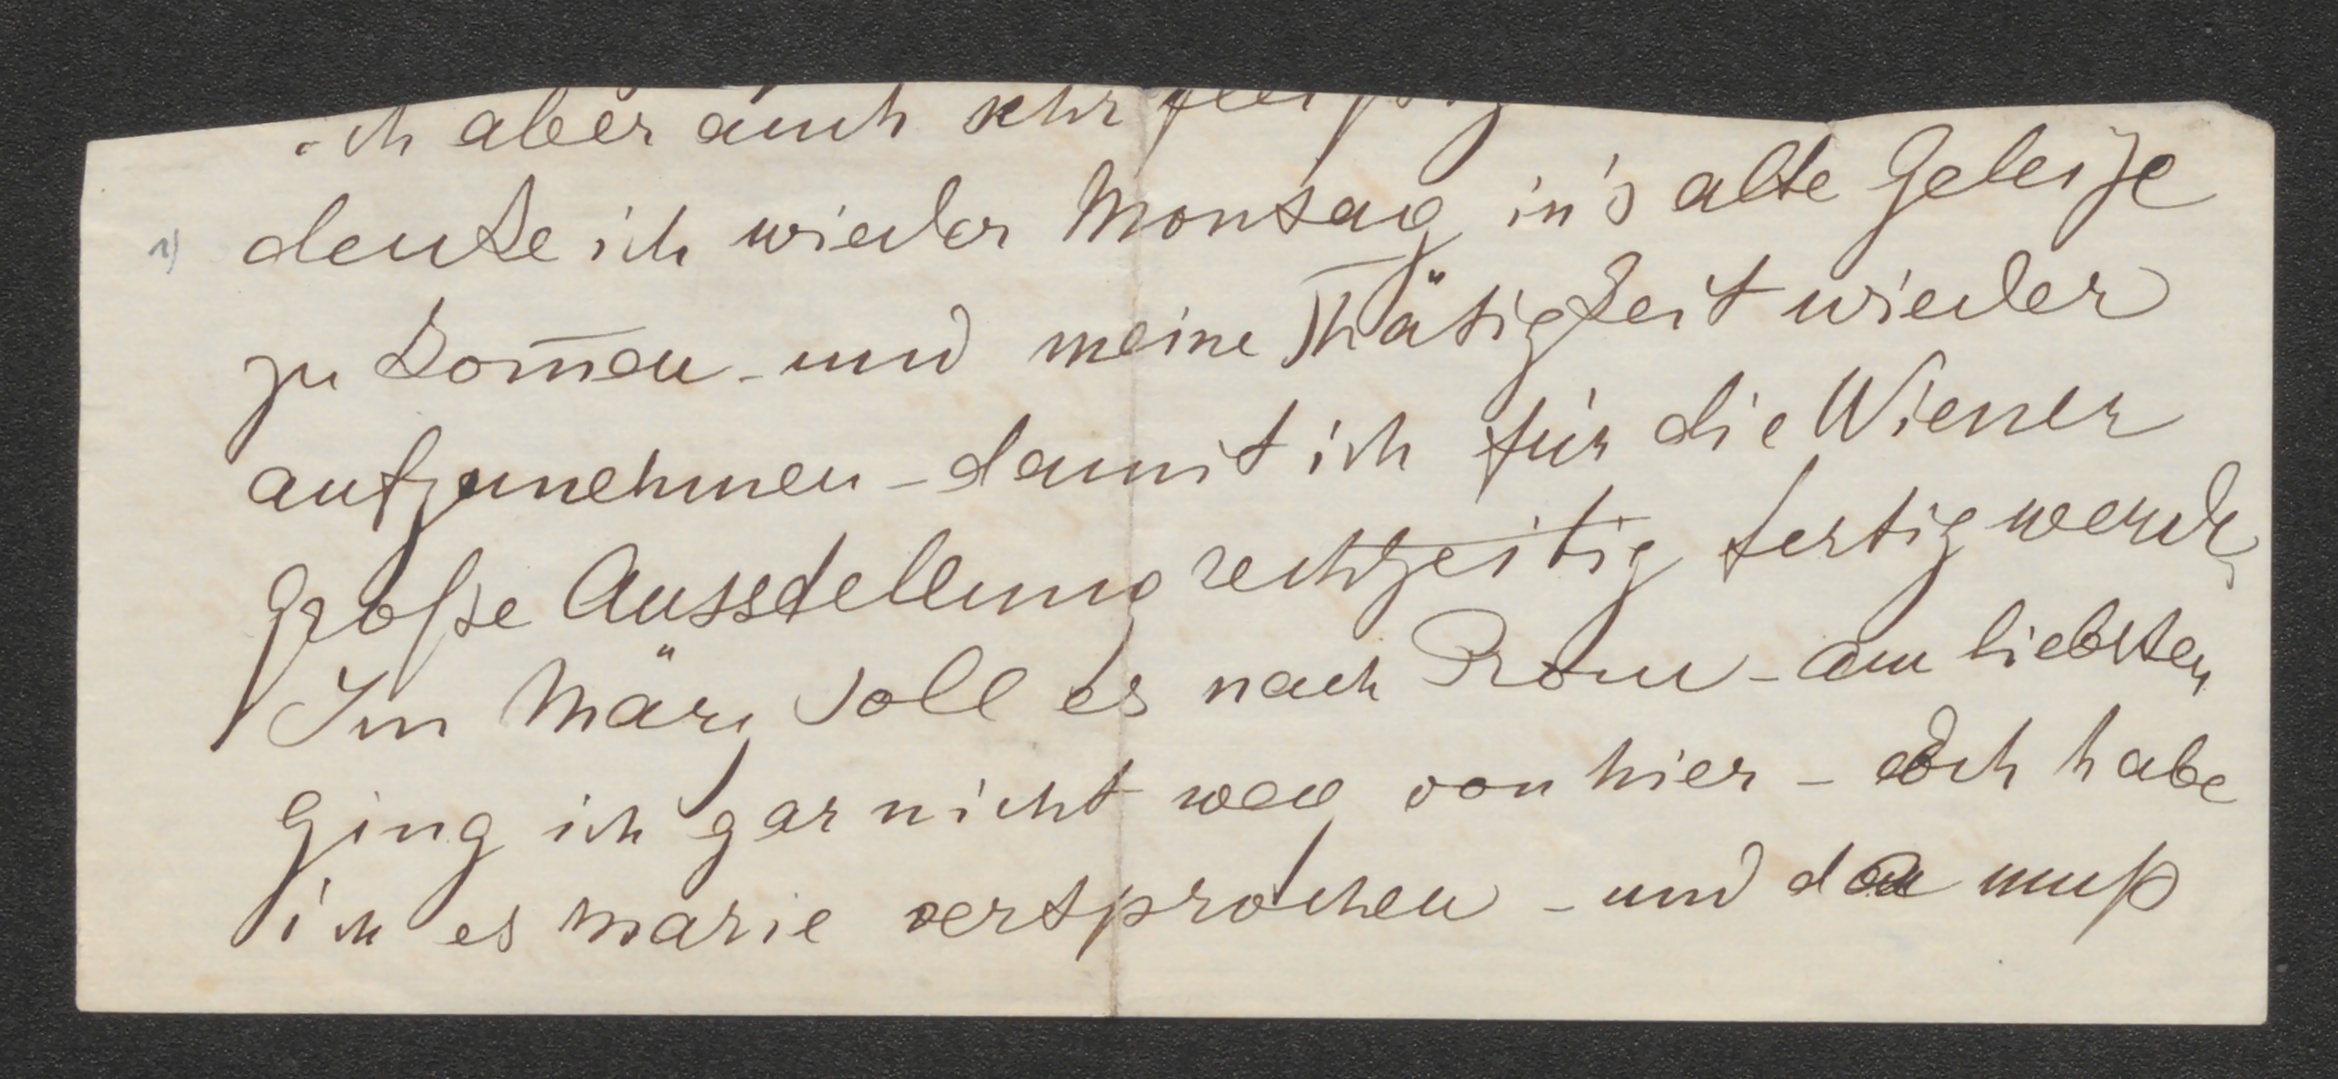 ich aber auch sehr fleißig
denke ich wieder Montag in's alte Geleise
1)
zu kom̄en - und meine Thätigkeit wieder
aufzunehmen - damit ich für die Wiener
große Ausstellung rechtzeitig fertig werde,
Im März soll es nach Rom - am liebsten
ging ich gar nicht weg von hier - doch habe
ich es Marie versprochen - und da muß